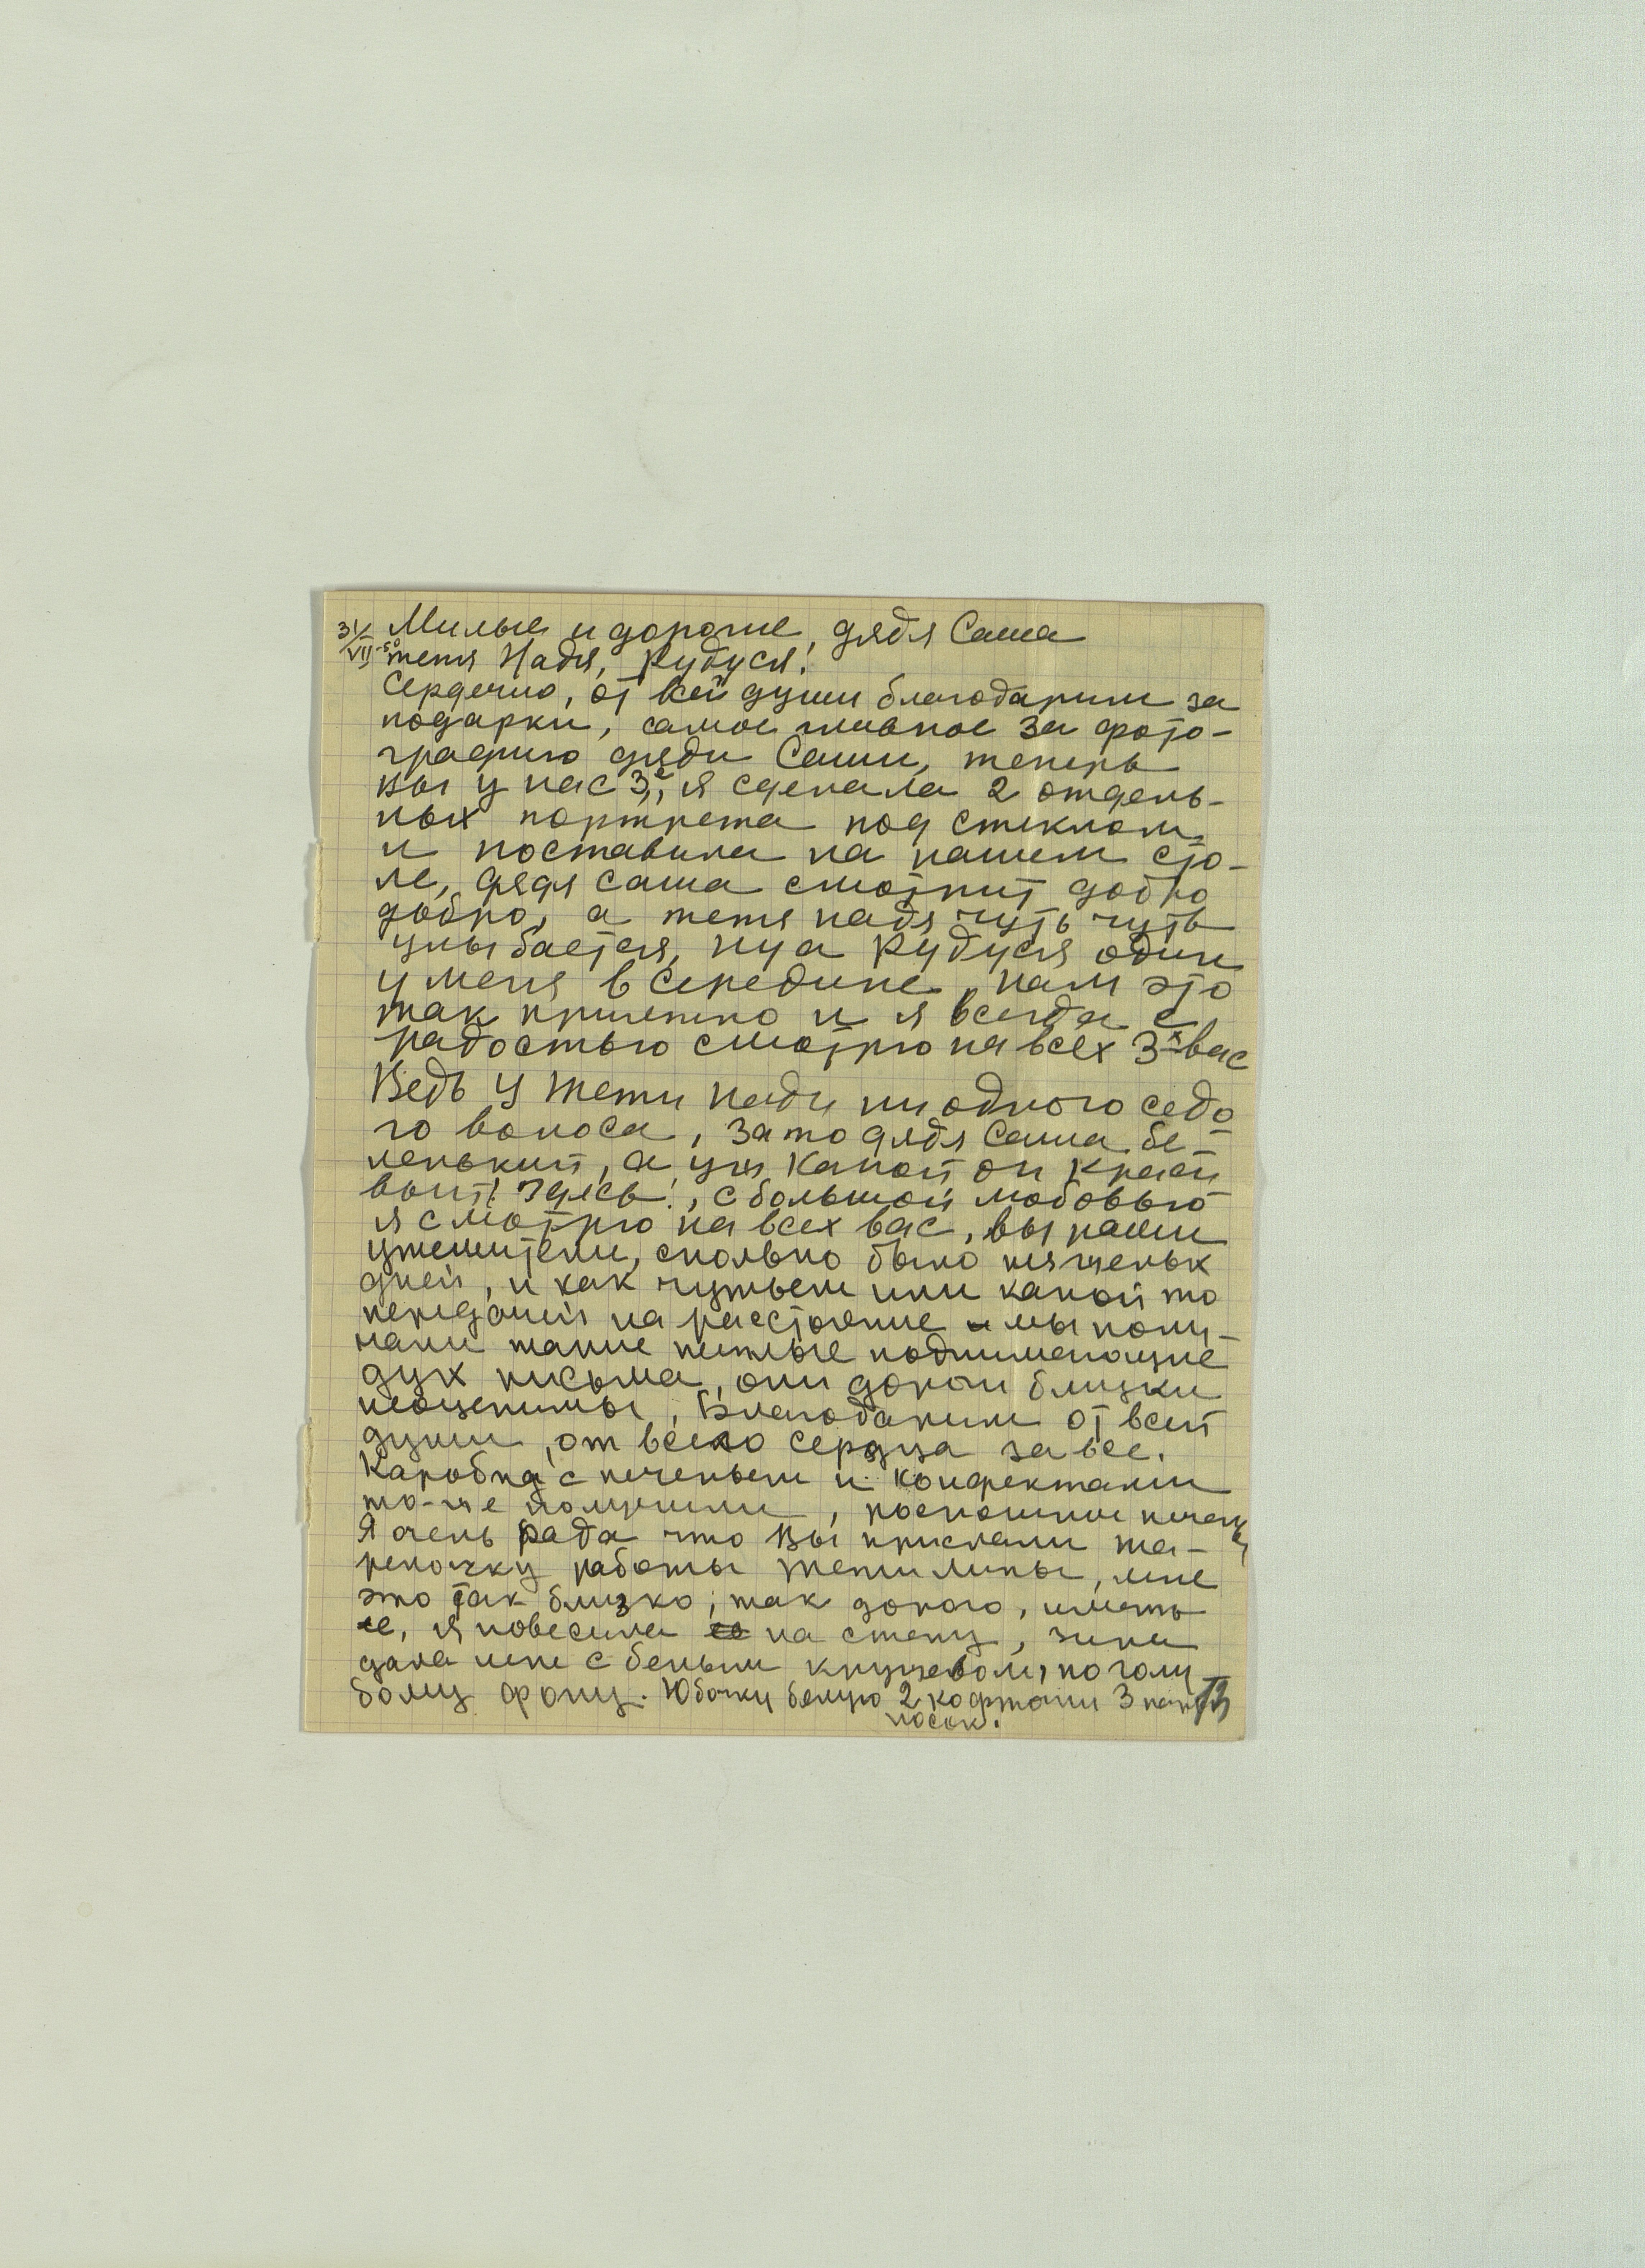 31/VII-50 Милые и дорогие, дядя Саша
тетя Надя, Рудуся!
Сердечно, от всей души благодарим за
подарки, самое главное за фото-
графию дяди Саши, теперь
вы у нас 3е, я сделала 2 отдель-
ных портрета под стеклом
и поставила на нашем сто-
ле, дядя Саша смотрит добро
добро, а тетя Надя чуть чуть
улыбается, ну а Рудуся один
у меня в середине, нам это
так приятно и я всегда с
радостью смотрю на всех 3х вас
Ведь у тети Нади ни одного седо
го волоса, зато дядя Саша бе-
ленький, а уж какой он краси
вый! здесь!, с большой любовью
я смотрю на всех вас, вы наши
утешители, сколько было тяжелых
дней, и как чутьем или какой то
передачей на расстояние мы полу-
чали такие теплые поднимающие
дух письма, они дороги близки
неоценимы, Благодарим от всей
души, от всего сердца за все.
Каробка с печеньем и конфектами
то-же получили, роскошное печенье
Я очень рада что Вы прислали та-
релочку работы тети Липы, мне
это так близко, так дорого, иметь
ее, я повесила на стену, Зина
дала мне с белым кружевом, по голу
бому фону. Юбочку белую 2 кофточки 3 пары
носок.